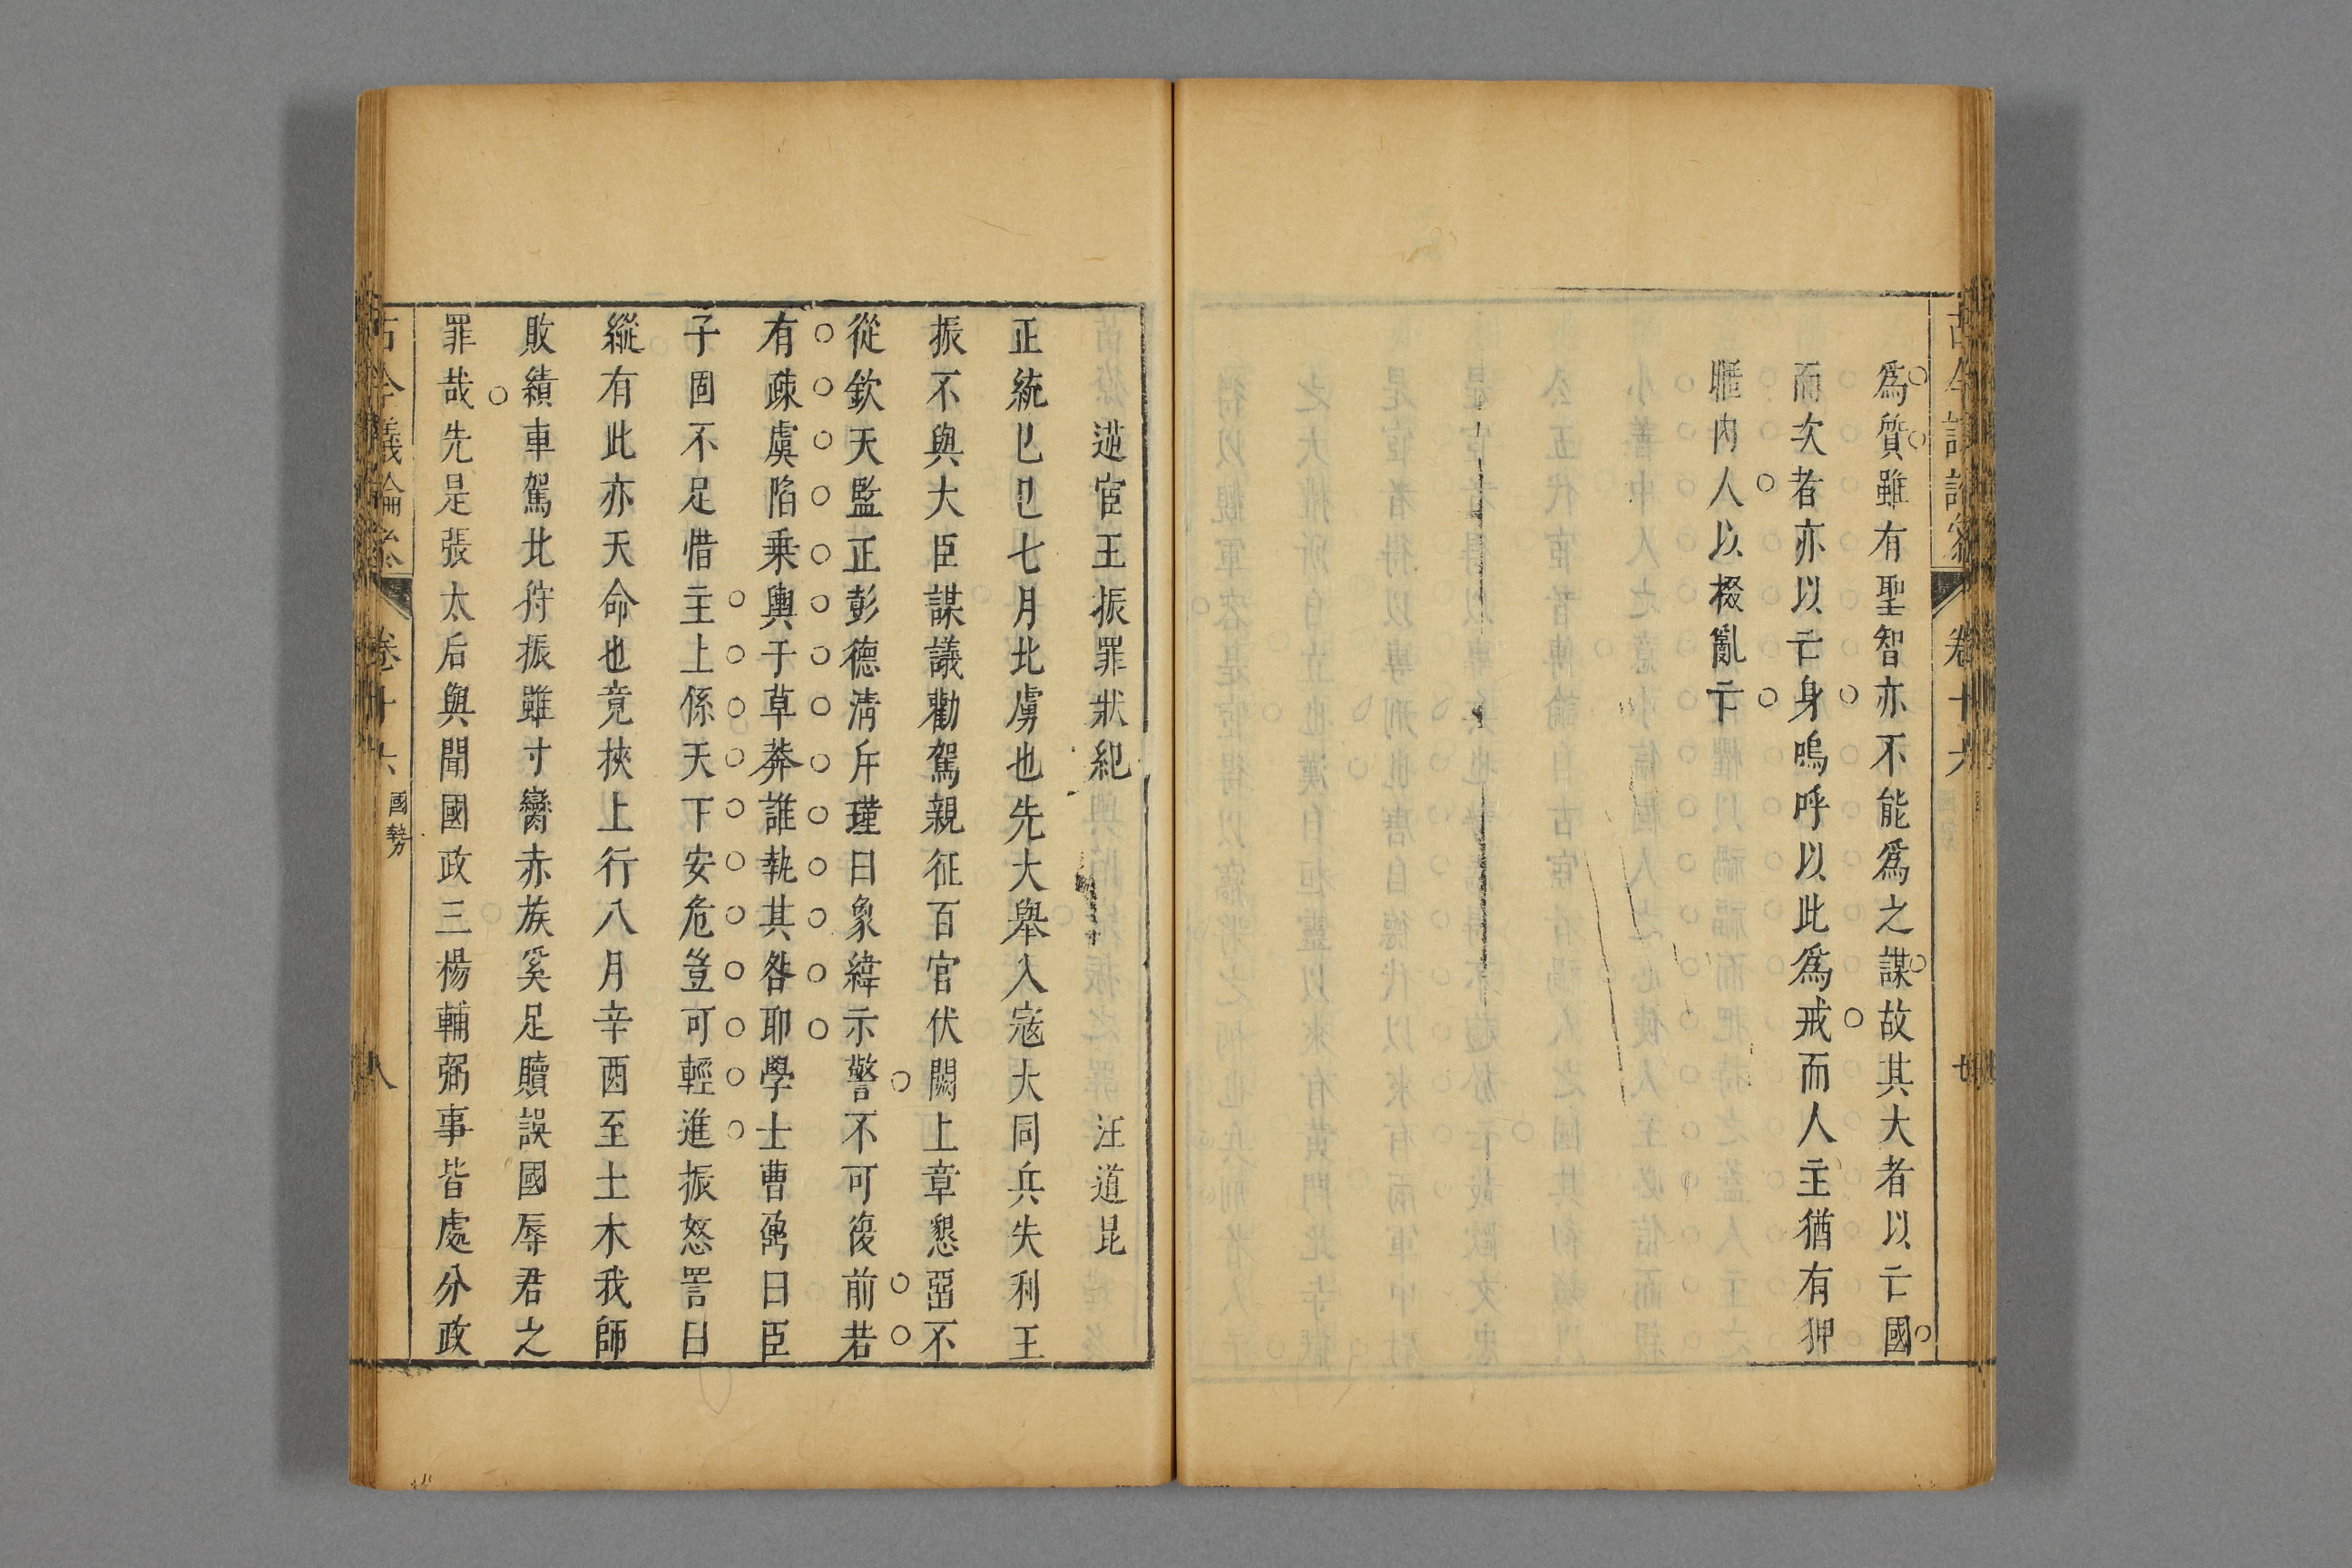 爲質雖有聖智亦不能爲之謀故其大者以亡國
而次者亦以亡身嗚呼以此爲戒而人主猶有狎
暱內人以椶亂亡
卷十六
逆宦王振罪狀紀 汪道昆
正統己巳七月北虜也先大舉入寇大同兵失利王
振不與大臣謀議勸駕親征百官伏闕上章懇畱不
從欽天監正彭德淸斥瑾曰象緯示警不可復前若
有疎虞陷乗輿于草莽誰執其咎耶學士曹鼐曰臣
子固不足惜主上係天下安危豈可輕進振怒詈曰
縱有此亦天命也竟挾上行八月辛酉至土木我師
敗績車駕北狩振雖寸臠赤族奚足贖誤國辱君之
罪哉先是張太后與聞國政三楊輔弼事皆處分政
古今議論參 卷十六 國勢 八